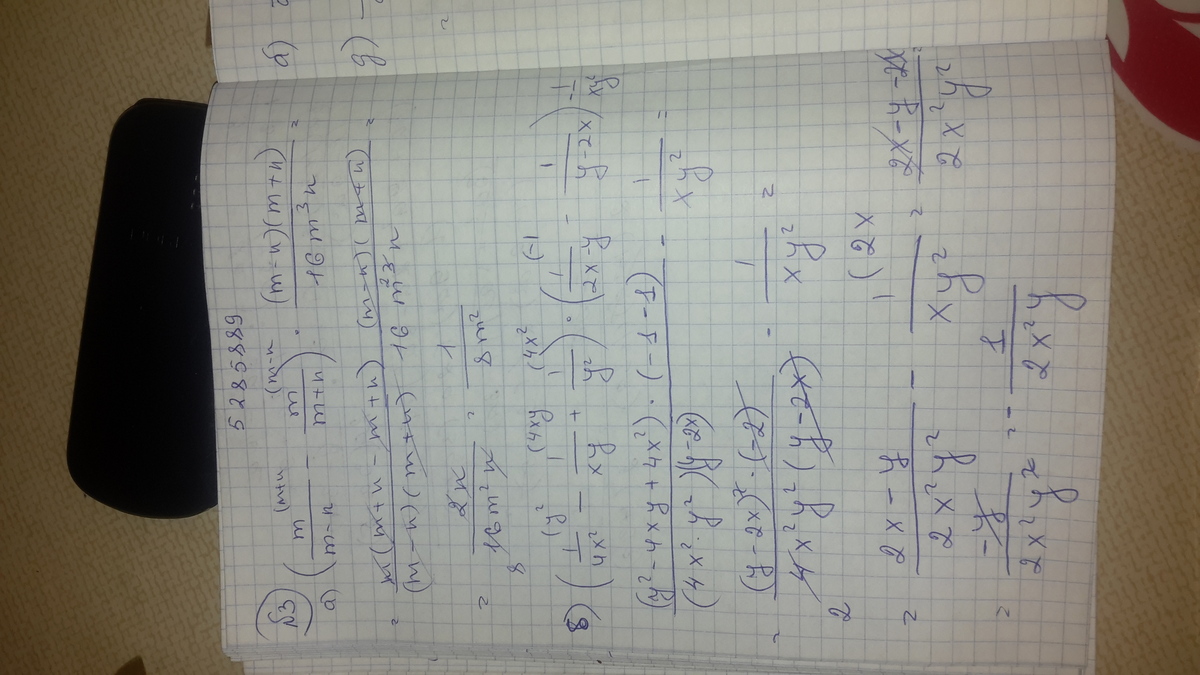 5285889
№3
а) (m/(m-n) (m+n - m/(m+n) (m-n) · (m-n)(m+n)/(16m³n) =
= m(m+n-m+n)/((m-n)(m+n)) (m-n)(m+n)/(16 m²³n) =
= 2n/(16m²n) 8 = 1/(8m²)
в) (1/(4x²) (y² - 1/(xy) (4xy + 1/(y²) (4x²) · (1/(2x-y) (-1 - 1/(y-2x)) - 1/(xy²)
(y²-4xy+4x²)·(-1-1)/((4x²·y²)(y-2x)) - 1/(xy²) =
= (y-2x)²·(-2)/(4x²y²(y-2x)) 2 - 1/(xy²) =
= (2x-y)/(2x²y²) - 1/(xy²) (2x = (2x-y-2x)/(2x²y²) =
= -y/(2x²y²) = - 1/(2x²y)
б)
д) -
=